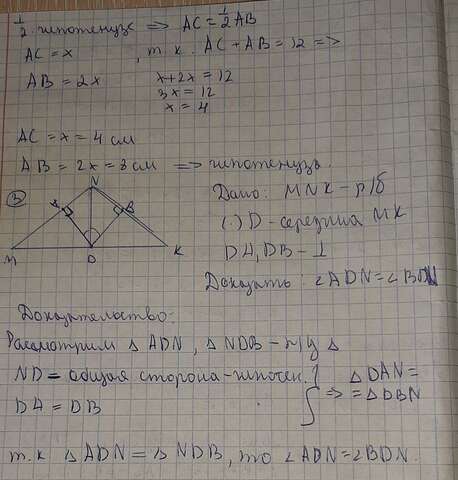 1/2 гипотенузе => AC = 1/2 AB
AC = x , т.к. AC + AB = 12 =>
AB = 2x x+2x = 12
3x = 12
x = 4
AC = x = 4 см
AB = 2x = 8 см => гипотенуза.
③
N
A B
M D K
Дано: MNK – р/б
(.) D – середина MK
DA, DB – ⊥
Доказать: ∠ADN = ∠BDN
Доказательство:
Рассмотрим △ ADN, △ NDB – п/у △
ND = общая сторона – гипотен. } => △ DAN =
DA = DB = △ DBN
т.к △ ADN = △ NDB, то ∠ADN = ∠BDN.